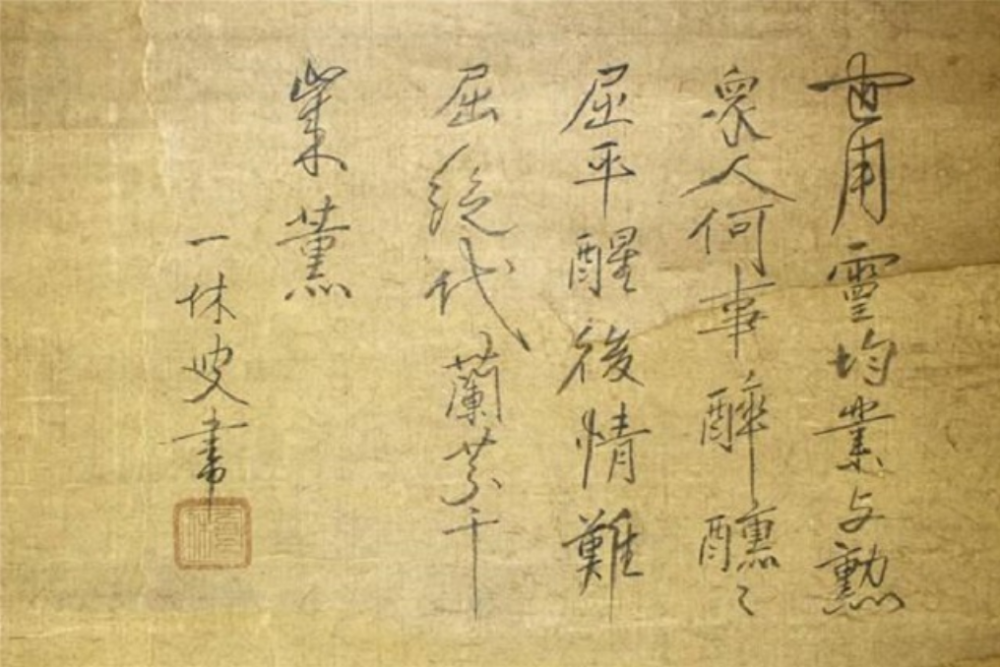 世用霊均業与勲
衆人何事醉醺〻
屈平醒後情難
屈絶代蘭芳千
葉薫
一休叟書